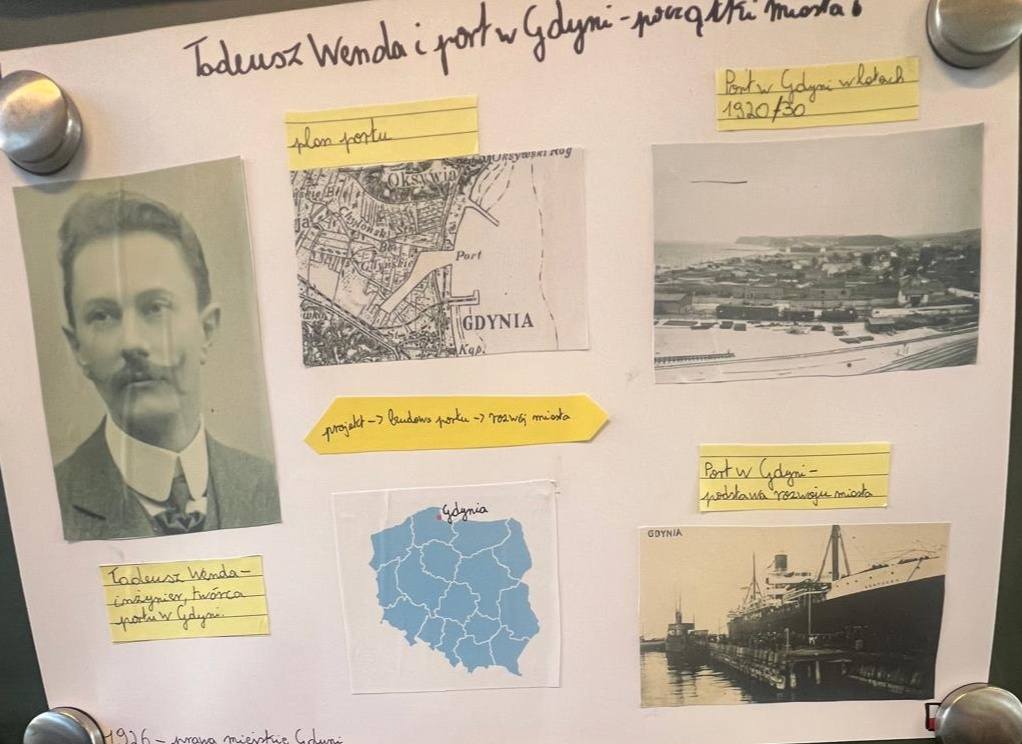 Tadeusz Wenda i port w Gdyni - początki miasta
plan portu
Port w Gdyni w latach
1920/30
Oksywski Róg
Oksywia
Port
GDYNIA
Kąp.
projekt -> budowa portu -> rozwój miasta
Gdynia
Port w Gdyni -
podstawa rozwoju miasta
GDYNIA
Tadeusz Wenda -
inżynier, twórca
portu w Gdyni
1926 - prawa miejskie Gdyni